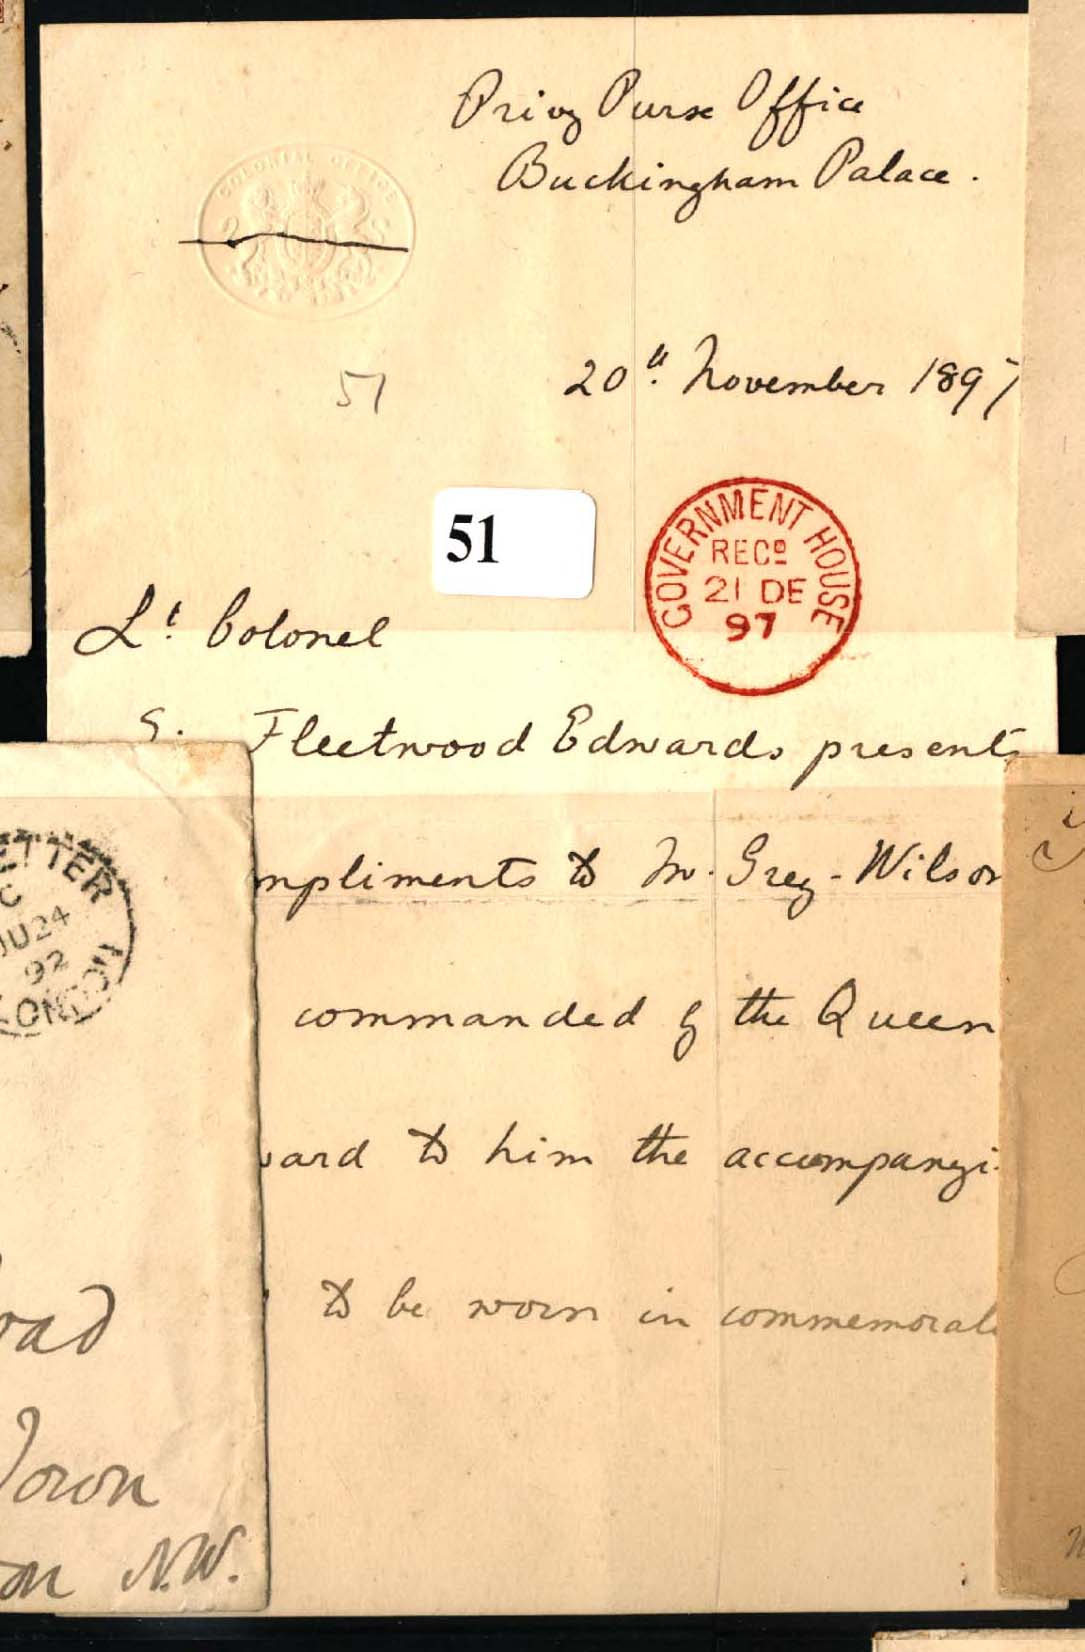 Privy Purse Office
Buckingham Palace.
COLONIAL OFFICE
20th November 1897
51
51
GOVERNMENT HOUSE
RECD
21 DE
97
Lt. Colonel
S. Fleetwood Edwards presents
mpliments to Mr. Grey-Wilson
commanded by the Queen
ward to him the accompanyi
to be worn in commemorat
ETTER
C
JU24
92
LONDON
oad
Town
on N.W.